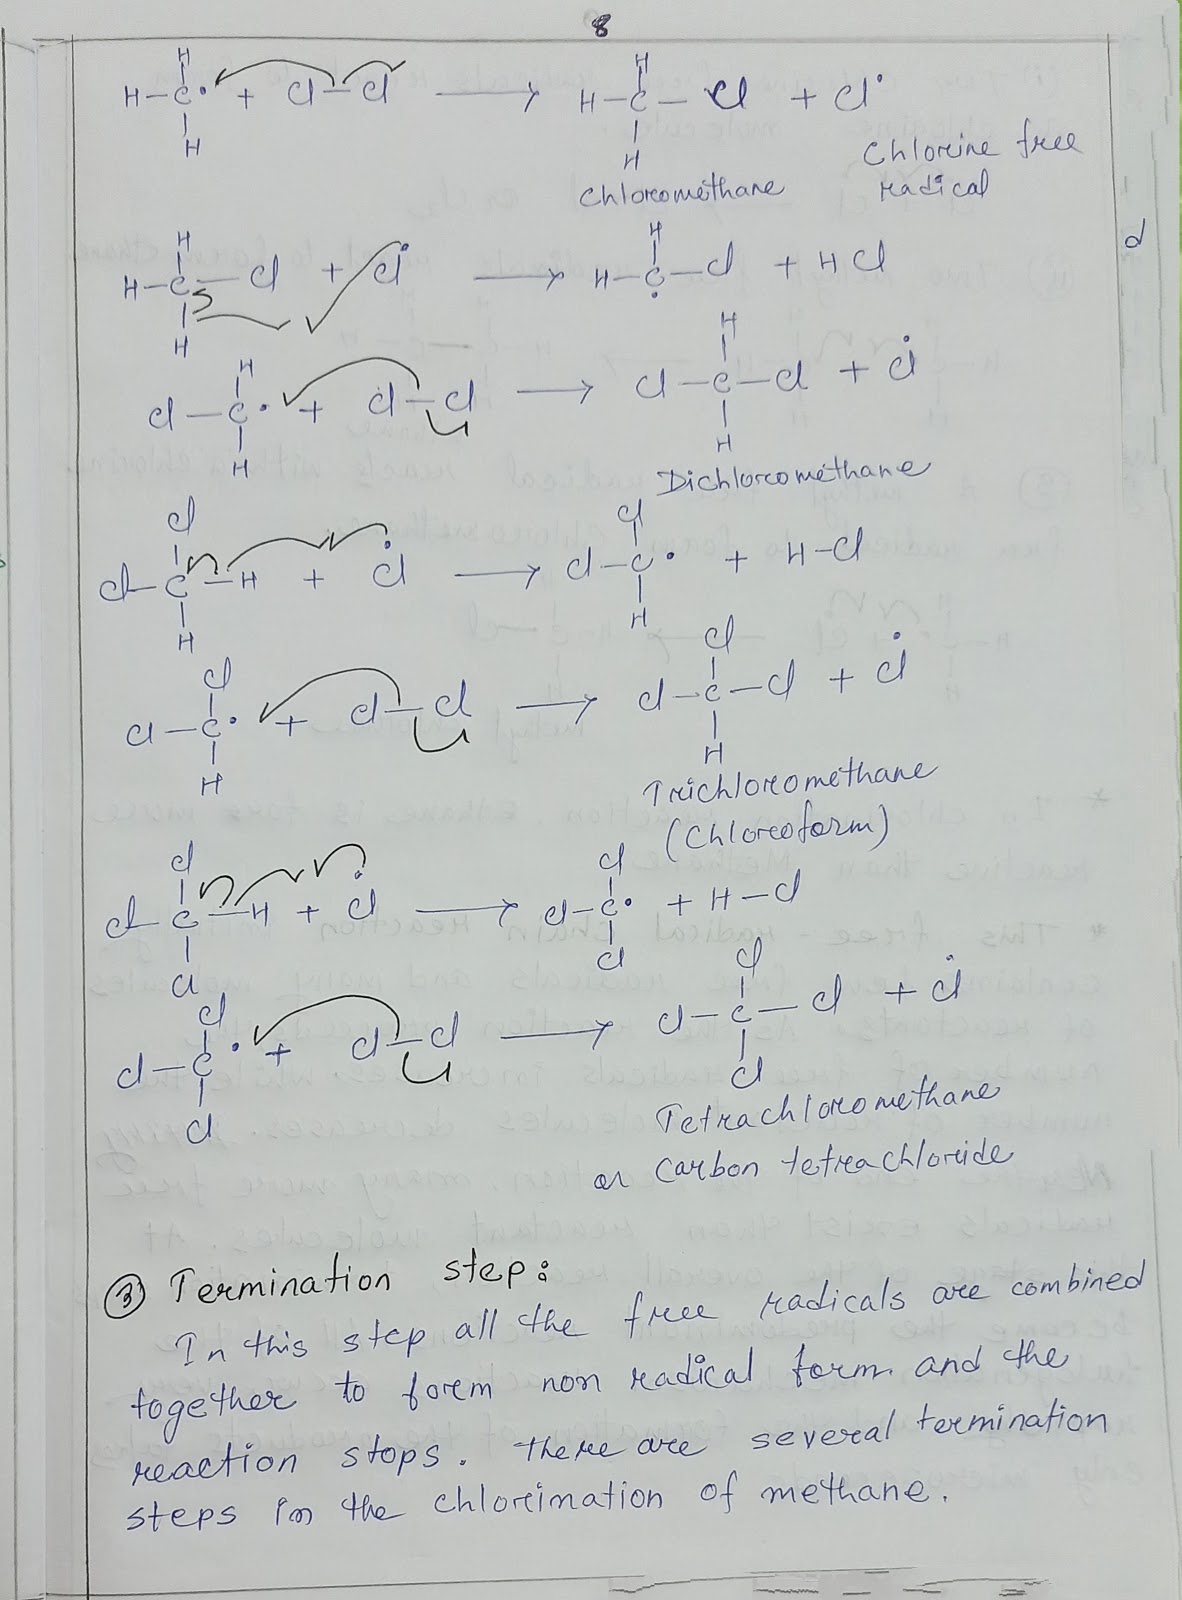 8
H
H-C• + Cl-Cl ⟶ H-C-Cl + Cl•
H
H
H
Chlorine free
Chloromethane radical
H
H
H-C-Cl + Cl• ⟶ H-C-Cl + HCl
H
H
H
Cl-C• + Cl-Cl ⟶ Cl-C-Cl + Cl•
H
H
Dichloromethane
Cl
Cl
Cl-C-H + Cl• ⟶ Cl-C• + H-Cl
H
H
Cl
Cl
Cl-C• + Cl-Cl ⟶ Cl-C-Cl + Cl•
H
H
Trichloromethane
(Chloroform)
Cl
Cl
Cl-C-H + Cl• ⟶ Cl-C• + H-Cl
Cl
Cl
Cl
Cl
Cl-C• + Cl-Cl ⟶ Cl-C-Cl + Cl•
Cl
Cl
Tetrachloromethane
or Carbon tetrachloride
③ Termination step:
In this step all the free radicals are combined
together to form non radical form and the
reaction stops. There are several termination
steps in the chlorination of methane.